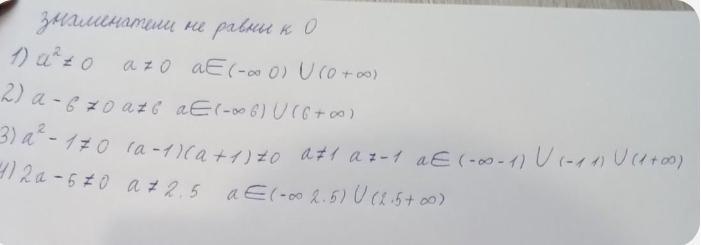 знаменатели не равны к 0
1) a² ≠ 0 a ≠ 0 a∈(-∞ 0) ∪ (0 +∞)
2) a - 6 ≠ 0 a ≠ 6 a∈(-∞ 6) ∪ (6 +∞)
3) a² - 1 ≠ 0 (a-1)(a+1) ≠ 0 a ≠ 1 a ≠ -1 a∈(-∞ -1) ∪ (-1 1) ∪ (1 +∞)
4) 2a - 5 ≠ 0 a ≠ 2.5 a∈(-∞ 2.5) ∪ (2.5 +∞)